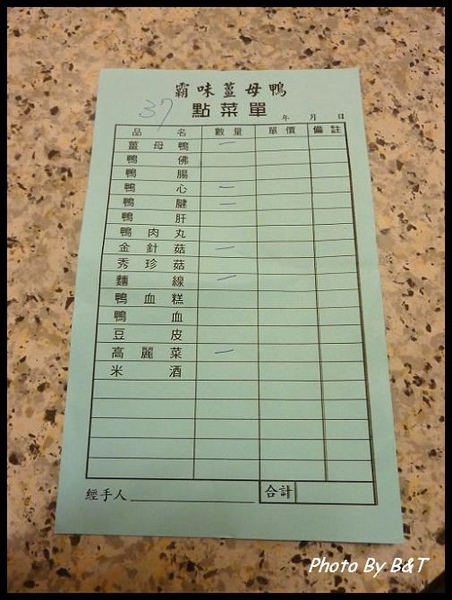 霸味薑母鴨
37 點菜單 年 月 日
品名 數量 單價 備註
薑母鴨 一
鴨佛
鴨腸
鴨心 一
鴨腱 一
鴨肝
鴨肉丸
金針菇 一
秀珍菇
麵線 一
鴨血糕
鴨血
豆皮
高麗菜 一
米酒
經手人 合計
Photo By B&T